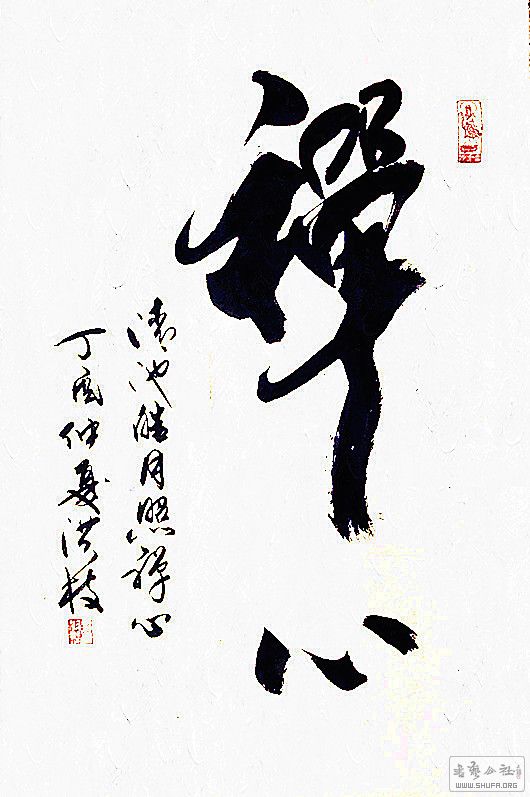 禪心
清池皓月照禅心
丁亥仲夏洪枝
书艺公社
WWW.SHUFA.ORG